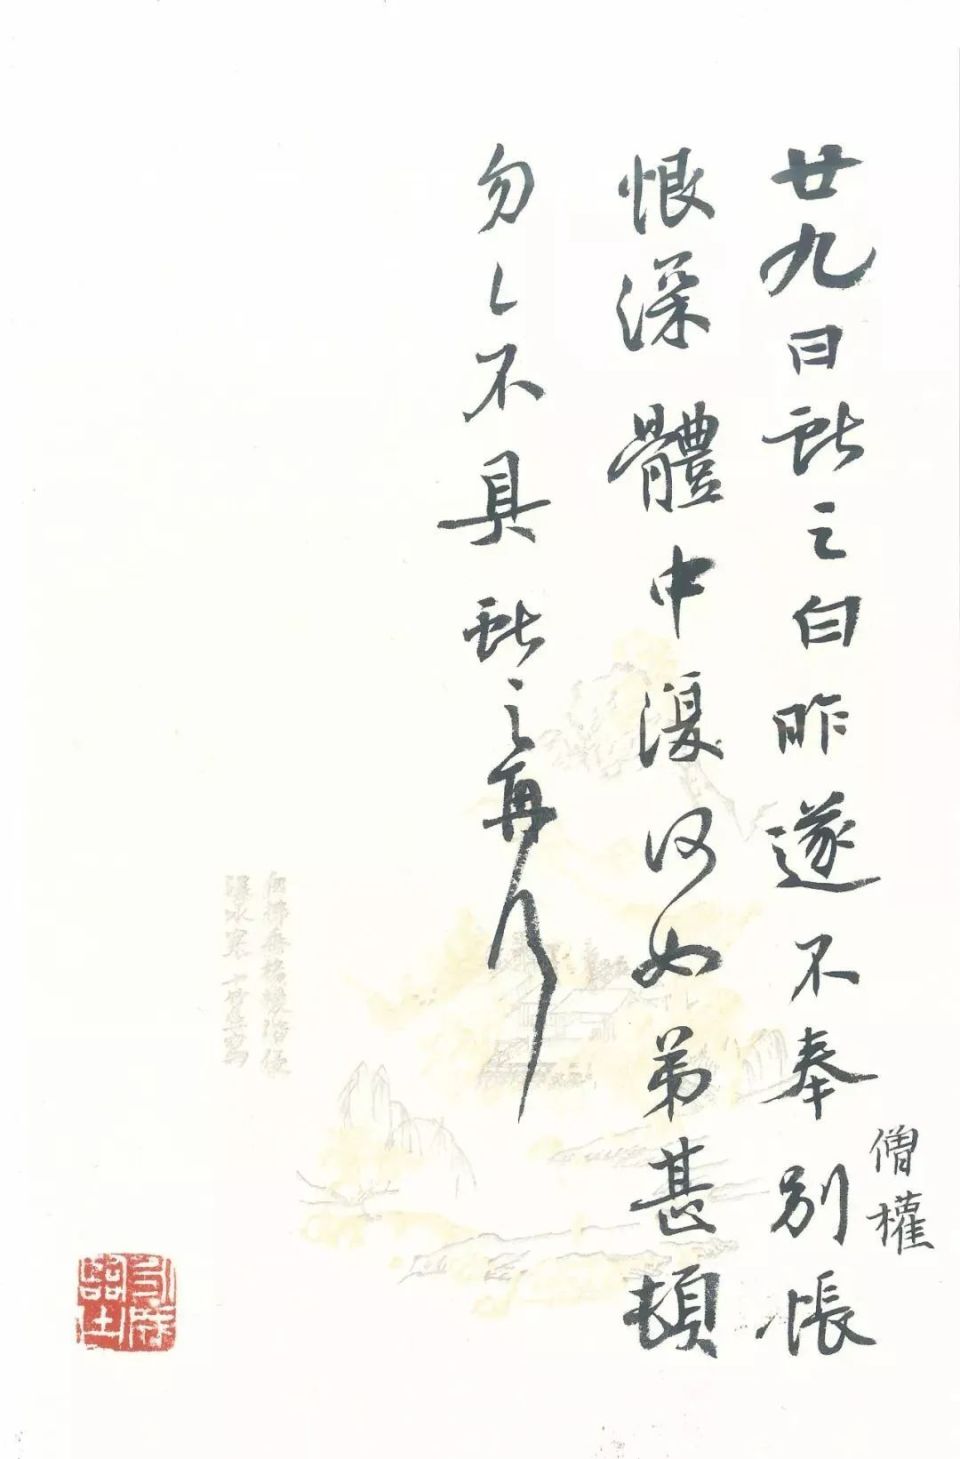 廿九日獻之白昨遂不奉別悵
僧權
恨深體中復何如弟甚頓
勿〻不具獻之再拜